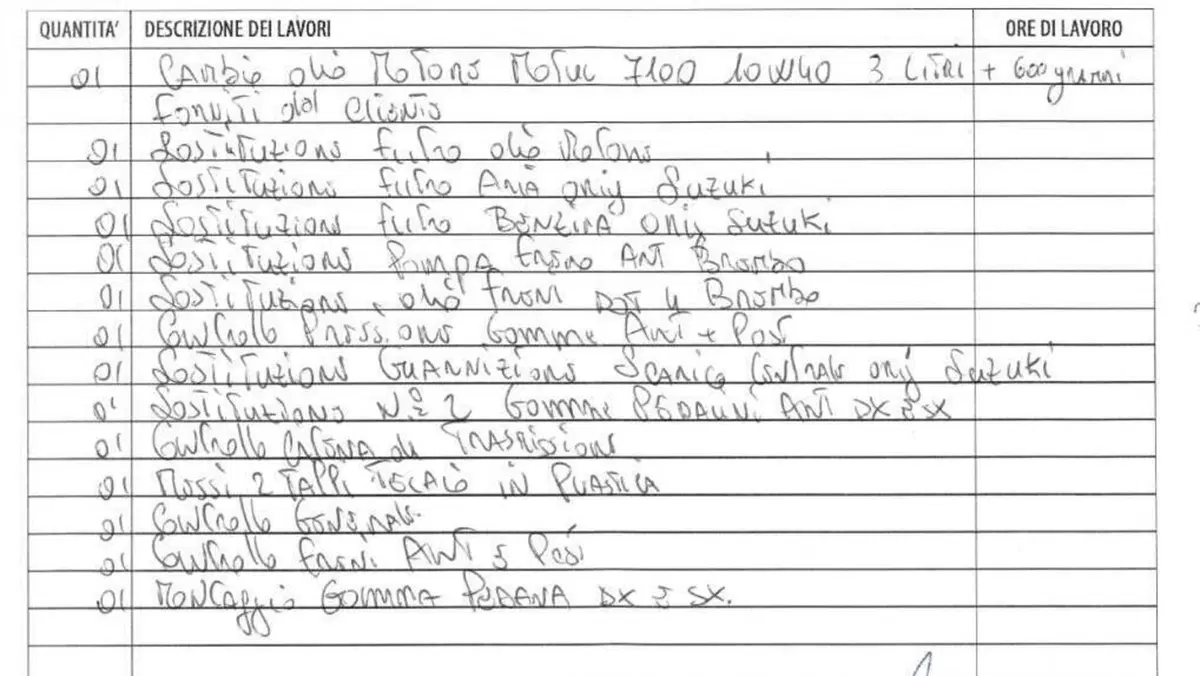 QUANTITA' DESCRIZIONE DEI LAVORI ORE DI LAVORO
01 Cambio olio Motore Motul 7100 10W40 3 LITRI + 600 grammi
forniti dal cliente
01 Sostituzione filtro olio Motore
01 Sostituzione filtro Aria orig Suzuki
01 Sostituzione filtro BENZINA orig Suzuki
01 Sostituzione POMPA freno ANT Brembo
01 Sostituzione olio freni DOT 4 Brembo
01 Controllo Pressione Gomme ANT + Post
01 Sostituzione GUARNIZIONE SCARICO Centrale orig Suzuki
01 Sostituzione N.º 2 Gomme PEDALINI ANT DX E SX
01 Controllo CATENA di TRASMISSIONE
01 Messi 2 TAPPI TELAIO IN PLASTICA
01 Controllo Generale
01 Controllo freni ANT E Post
01 MONTAGGIO GOMMA PEDANA DX E SX.